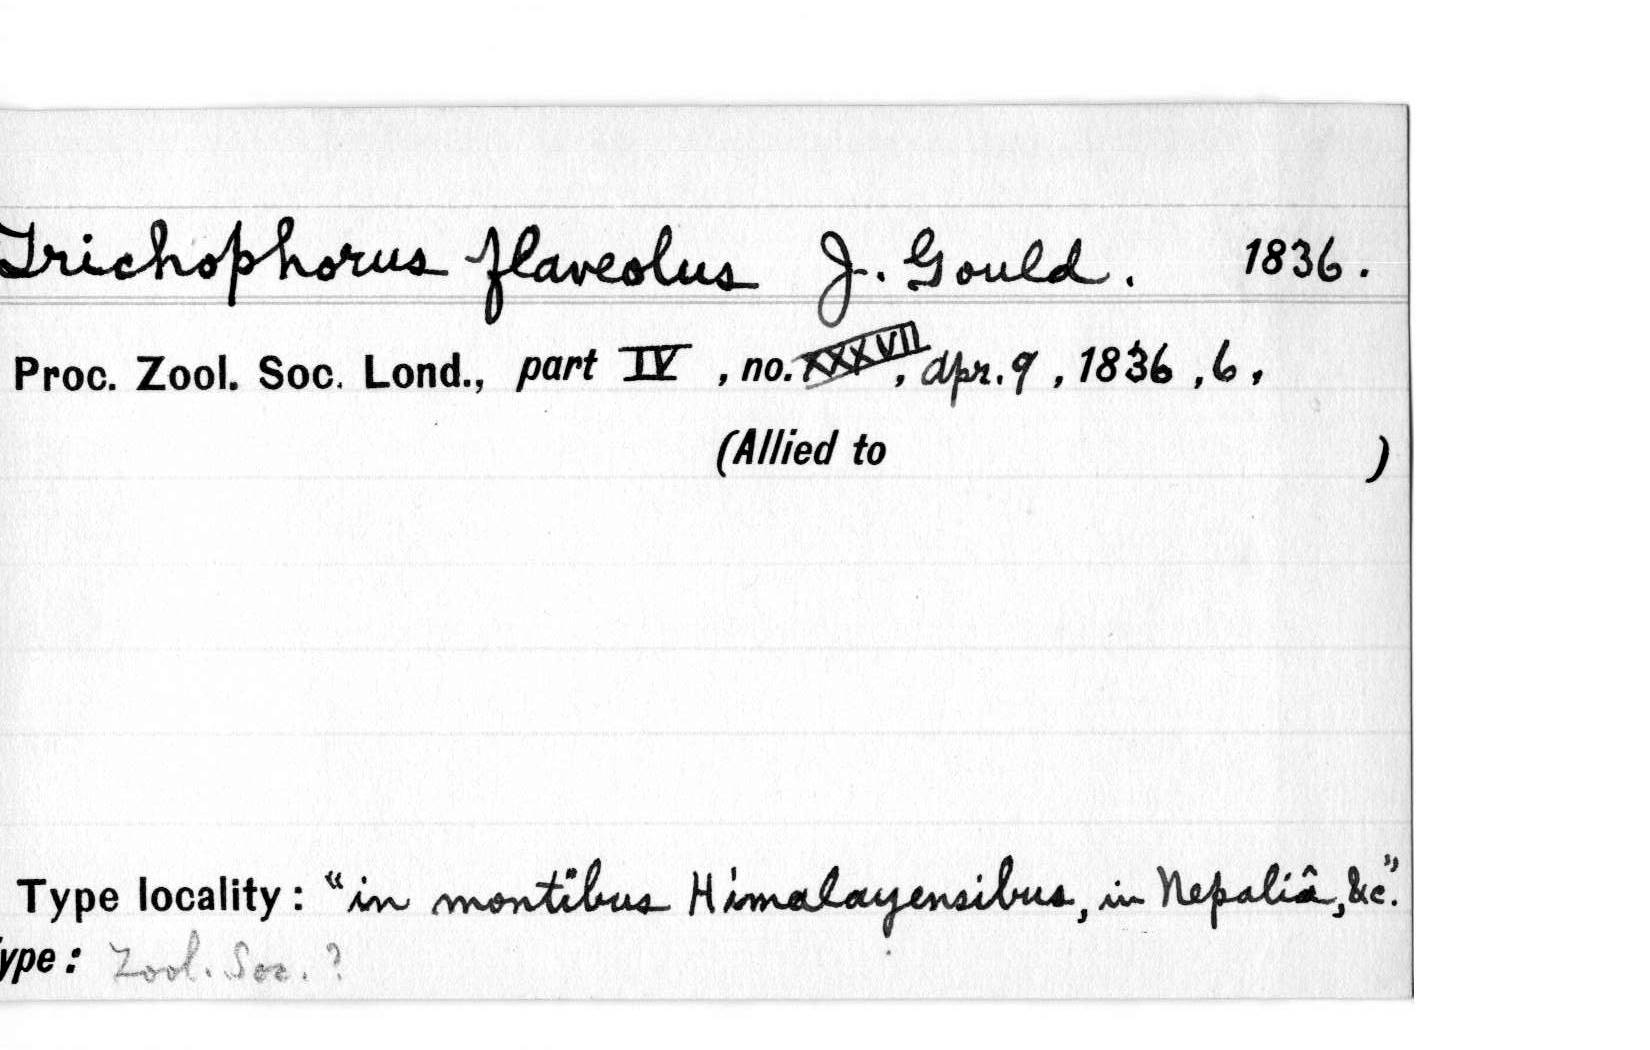 Trichophorus flaveolus J. Gould. 1836.
Proc. Zool. Soc. Lond., part IV, no. XXXVII, Apr. 9, 1836, 6,
(Allied to )
Type locality: "in montibus Himalayensibus, in Nepaliâ, &c".
ype: Zool. Soc. ?